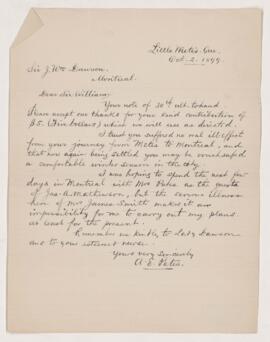 Little Metis. Que.
Oct. 2. 1899.
Sir J. Wm Dawson.
Montreal.
Dear Sir William,
Your note of 30th ult. to hand.
Please accept our thanks for your kind contribution of
$5. (Five Dollars) which we will use as directed.
I trust you suffered no real ill effect
from your journey from Metis to Montreal, and
that now again being settled you may be vouchsafed
a comfortable winter season in the city.
I was hoping to spend the next few
days in Montreal with Mrs as the guests
of Jas. A. Mathewson, but the serious illness
here of Mrs James Smith makes it an
impossibility for me to carry out my plans.
at least for the present.
Remember me kindly to Lady Dawson
and to your interest never.
Yours very Sincerely
A. E.